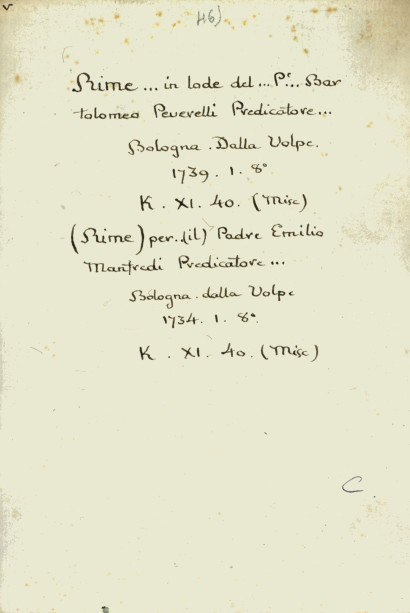 46)
Rime ... in lode del ... P.e... Bar
tolomeo Peverelli Predicatore ...
Bologna. Dalla Volpe.
1739. 1. 8°
K. XI. 40. (Misc)
(Rime) per. (il) Padre Emilio
Manfredi Predicatore ...
Bologna. dalla Volpe
1734. 1. 8°.
K. XI. 40. (Misc)
C